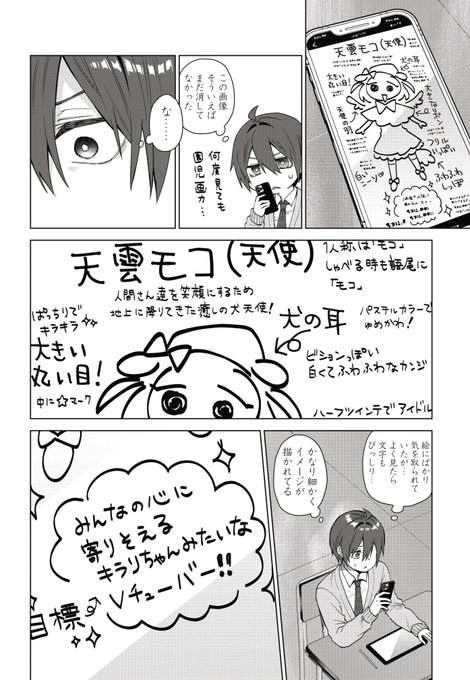 天雲モコ(天使)
犬の耳
大きい
丸い目!
天使の羽
大きなリボン
フリル
いっぱい
白いソックス
ふわふわ
しっぽ
この画像
そういえば
まだ消して
なかった
何度見ても
園児画力…
な……
天雲モコ(天使)
人間さん達を笑顔にするため
地上に降りてきた癒しの犬天使!
1人称は「モコ」
しゃべる時も語尾に
「モコ」
犬の耳
パステルカラーで
ゆめかわ!
ビションっぽい
白くてふわふわなカンジ
ハーフツインテでアイドル
ぱっちりで
キラキラ
大きい
丸い目!
中に☆マーク
絵にばかり
気を取られて
いたが…
よく見たら
文字も
びっしり…
かなり細かく
イメージが
描かれてる
みんなの心に
寄りそえる
キラリちゃんみたいな
Vチューバー!!
目標